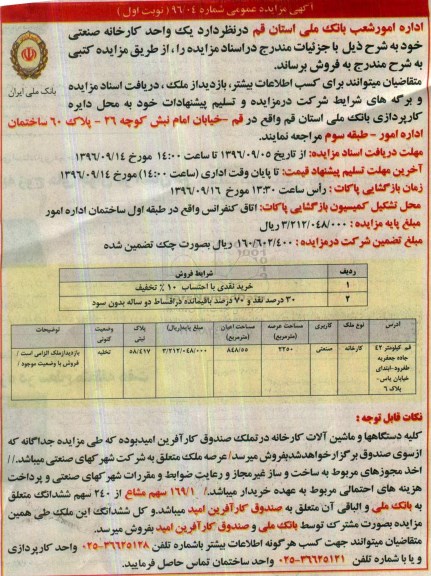 آگهی مزایده عمومی شماره ۹۶/۰۴ (نوبت اول)
اداره امورشعب بانک ملی استان قم درنظردارد یک واحد کارخانه صنعتی
خود به شرح ذیل با جزئیات مندرج دراسناد مزایده را، از طریق مزایده کتبی
به شرح مندرج به فروش برساند.
بانک ملی ایران
متقاضیان میتوانند برای کسب اطلاعات بیشتر، بازدیداز ملک ، دریافت اسناد مزایده
و برگه های شرایط شرکت درمزایده و تسلیم پیشنهادات خود به محل دایره
کارپردازی بانک ملی استان قم واقع در قم -خیابان امام نبش کوچه ۲۶ - پلاک ۶۰ ساختمان
اداره امور - طبقه سوم مراجعه نمایند.
مهلت دریافت اسناد مزایده: از تاریخ ۱۳۹۶/۰۹/۰۵ تا ساعت ۱۴:۰۰ مورخ ۱۳۹۶/۰۹/۱۴
آخرین مهلت تسلیم پیشنهاد قیمت: تا پایان وقت اداری (ساعت ۱۴:۰۰) مورخ ۱۳۹۶/۰۹/۱۴
زمان بازگشایی پاکات : رأس ساعت ۱۳:۳۰ مورخ ۱۳۹۶/۰۹/۱۶
محل تشکیل کمیسیون بازگشایی پاکات: اتاق کنفرانس واقع در طبقه اول ساختمان اداره امور
مبلغ پایه مزایده : ۳/۲۱۲/۰۴۸/۰۰۰ ریال
مبلغ تضمین شرکت درمزایده : ۱۶۰/۶۰۲/۴۰۰ ریال بصورت چک تضمین شده
ردیف شرایط فروش
۱ خرید نقدی با احتساب ۱۰ ٪ تخفیف
۲ ۳۰ درصد نقد و ۷۰ درصد باقیمانده دراقساط دو ساله بدون سود
آدرس نوع ملک کاربری مساحت عرصه (مترمربع) مساحت اعیان (مترمربع) مبلغ پایه(ریال) پلاک ثبتی وضعیت کنونی توضیحات
قم کیلومتر ۴۲ جاده جعفریه طغرود-ابتدای خیابان یاس- پلاک ۶ کارخانه صنعتی ۳۲۵۰ ۸۴۸/۵۵ ۳/۲۱۲/۰۴۸/۰۰۰ ۵۸/۴۱۷ تخلیه بازدیدازملک الزامی است / فروش با وضعیت موجود /
نکات قابل توجه :
کلیه دستگاهها و ماشین آلات کارخانه درتملک صندوق کارآفرین امیدبوده که طی مزایده جداگانه که
ازسوی صندوق برگزارخواهدشدبفروش میرسد/ عرصه ملک متعلق به شرکت شهرکهای صنعتی میباشد.//
اخذ مجوزهای مربوط به ساخت و ساز غیرمجاز و رعایت ضوابط و مقررات شهرکهای صنعتی و پرداخت
هزینه های احتمالی مربوط به عهده خریدار میباشد./ ۱۶۹/۱ سهم مشاع از ۲۴۰ سهم ششدانگ متعلق
به بانک ملی و الباقی آن متعلق به صندوق کارآفرین امید میباشدو کل ششدانگ این ملک طی همین
مزایده بصورت مشترک توسط بانک ملی و صندوق کارآفرین امید بفروش میرسد.
متقاضیان میتوانند جهت کسب هرگونه اطلاعات بیشتر باشماره تلفن ۳۶۶۲۵۱۲۸-۰۲۵ واحد کارپردازی
و یا با شماره تلفن ۳۶۶۲۵۱۲۱-۰۲۵ واحد ساختمان تماس حاصل فرمایید.